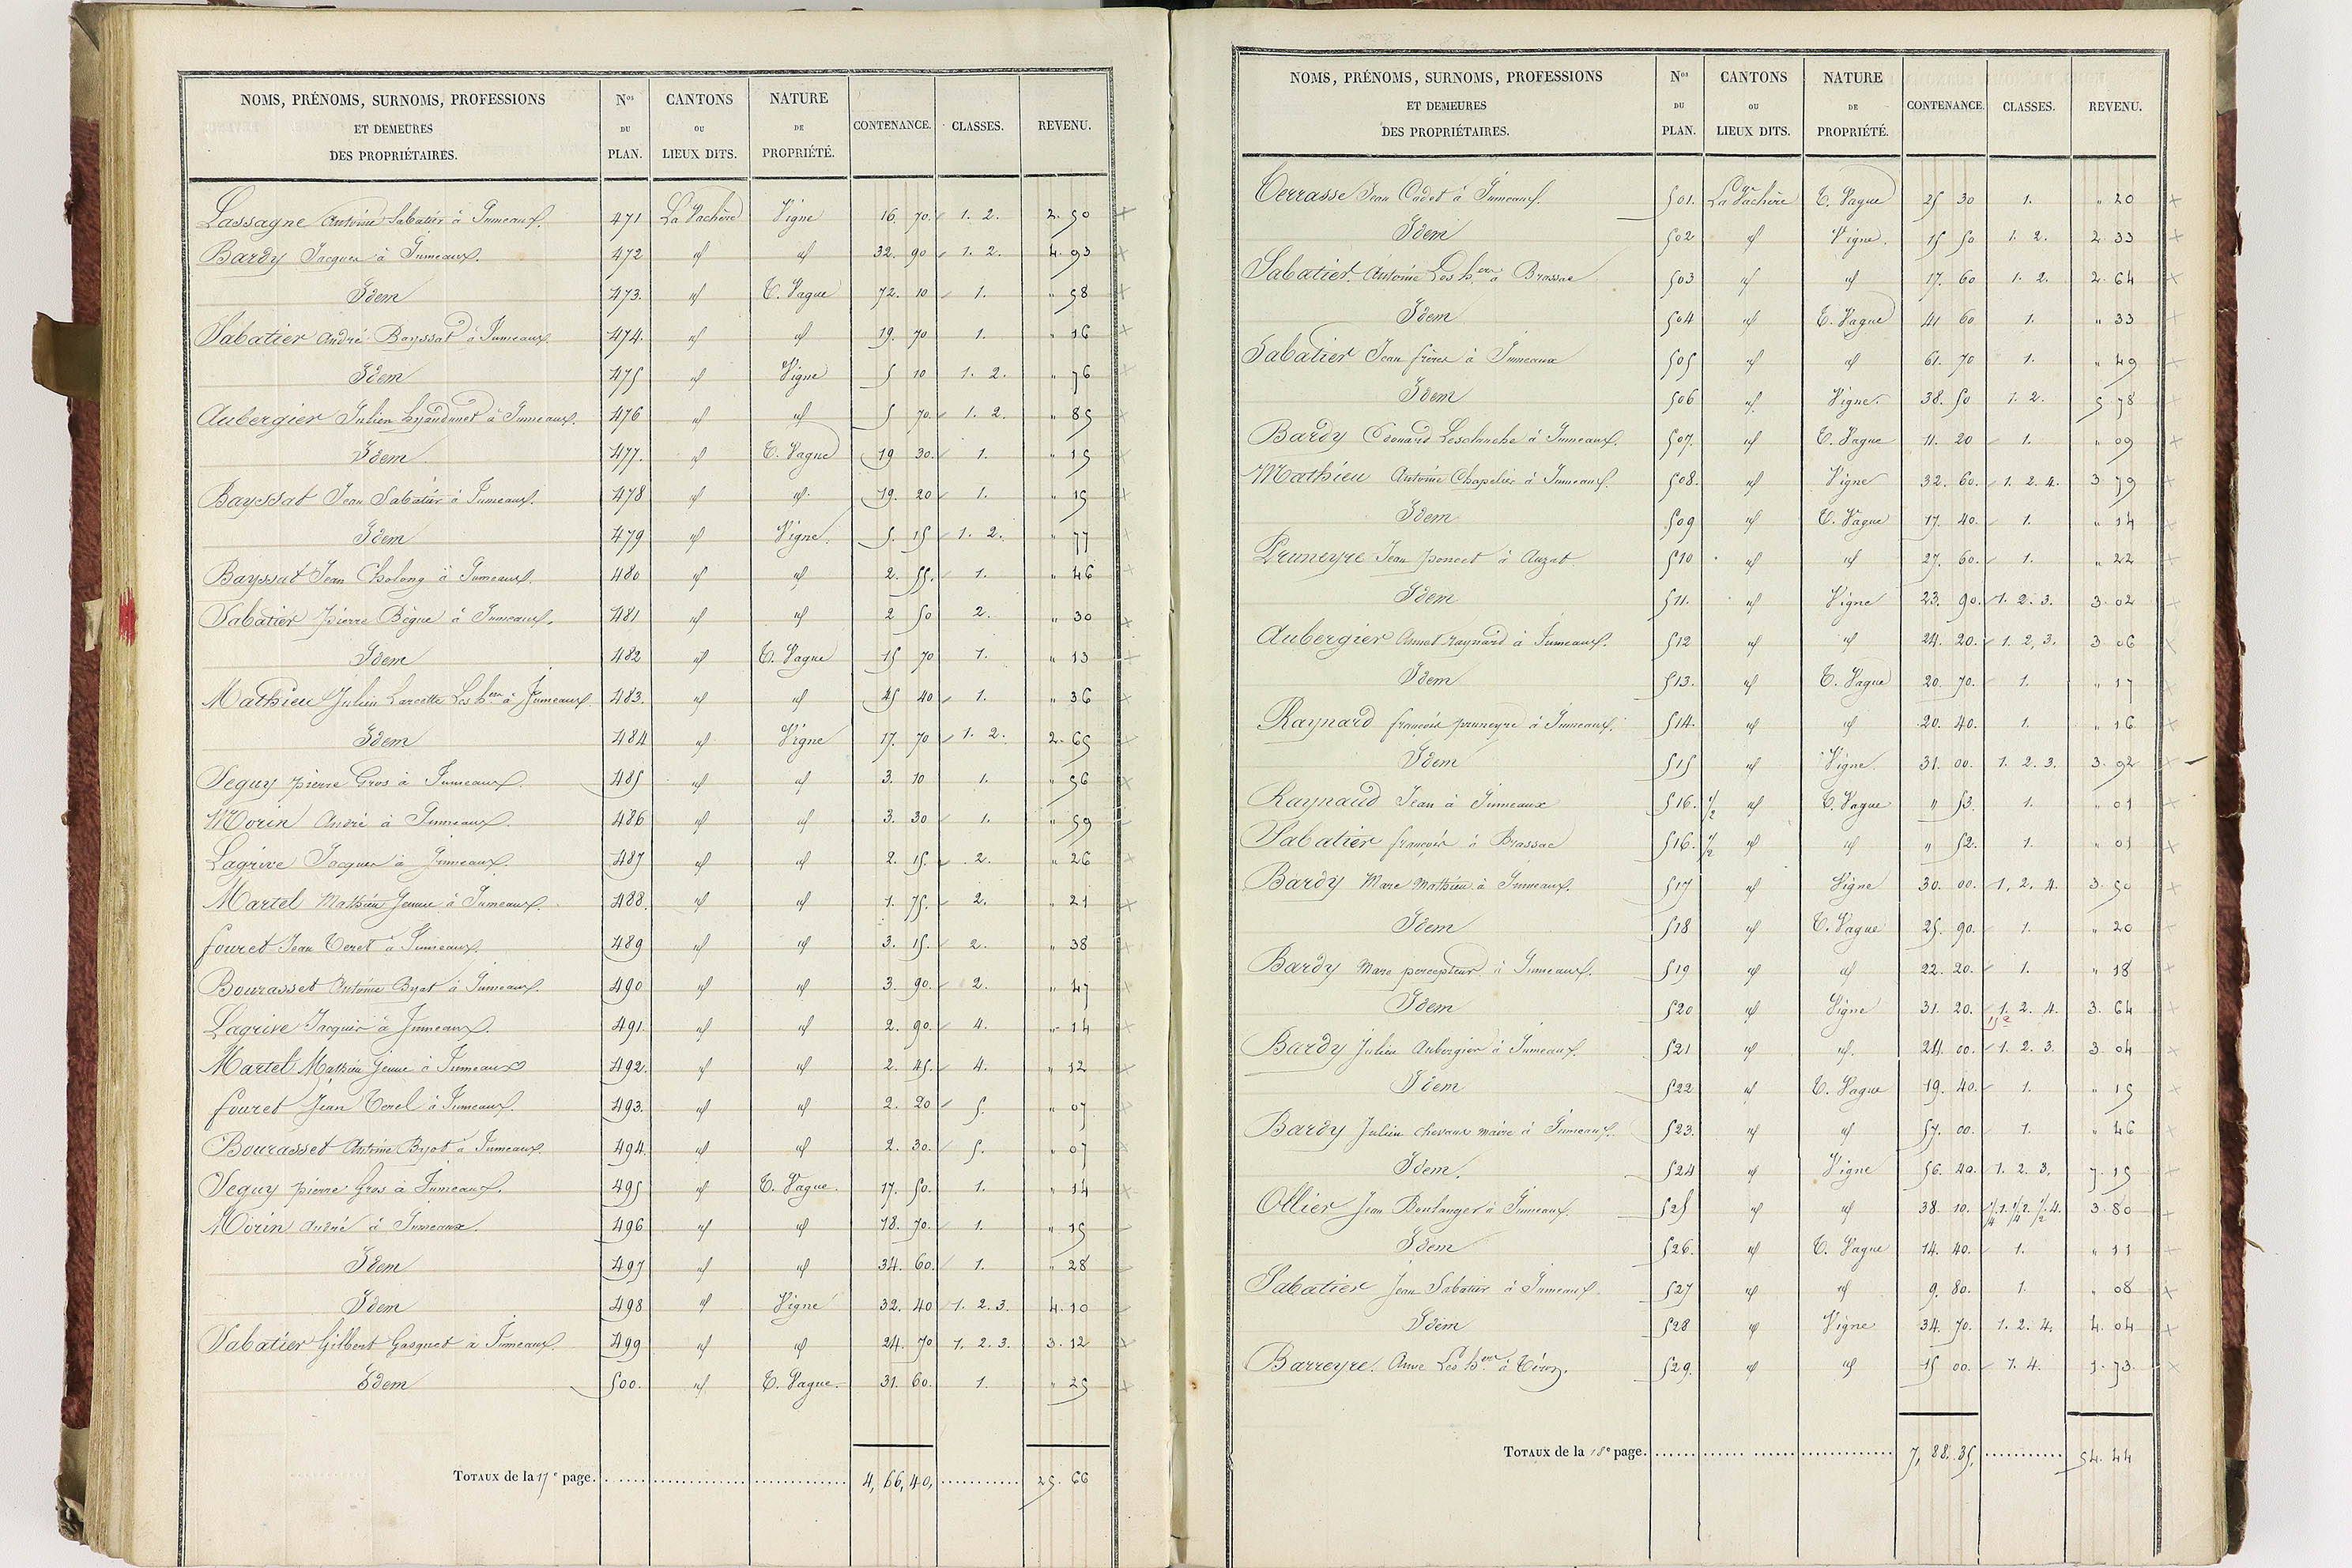 NOMS, PRÉNOMS, SURNOMS, PROFESSIONS ET DEMEURES DES PROPRIÉTAIRES. Nos DU PLAN. CANTONS OU LIEUX DITS. NATURE DE PROPRIÉTÉ. CONTENANCE. CLASSES. REVENU.
Lassagne Antoine Sabatier à Jumeaux. 471 La Vachère Vigne 16 70. 1. 2. 2. 50
Bardy Jacques à Jumeaux. 472 id id 32. 90 1. 2. 4. 93
Idem 473. id T. Vague 72. 10 1. " 58
Sabatier André Bayssat à Jumeaux. 474. id id 19. 70 1. " 16
Idem 475 id Vigne 5 10 1. 2. " 76
Aubergier Julien à Jumeaux. 476 id id 5 70. 1. 2. " 85
Idem 477. id T. Vague 19 30. 1. " 15
Bayssat Jean Sabatier à Jumeaux. 478 id id 19. 20 1. " 15
Idem 479 id Vigne. 5. 15 1. 2. " 77
Bayssat Jean Cholong à Jumeaux. 480 id id 2. 55. 1. " 46
Sabatier pierre Bègue à Jumeaux. 481 id id 2 50 2. " 30
Idem 482 id T. Vague 15 70 1. " 13
Mathieu Julien Larcette Les hers à Jumeaux. 483. id id 45 40 1. " 36
Idem 484 id Vigne 17. 70 1. 2. 2. 65
Seguy pierre Gros à Jumeaux. 485 id id 3. 10 1. " 56
Morin André à Jumeaux. 486 id id 3. 30 1. " 59
Lagrive Jacques à Jumeaux. 487 id id 2. 15. 2. " 26
Martel Mathieu Jeune à Jumeaux. 488. id id 1. 75. 2. " 21
fouret Jean Terel à Jumeaux. 489 id id 3. 15. 2. " 38
Bourasset Antoine Byot à Jumeaux. 490 id id 3. 90. 2. " 47
Lagrive Jacques à Jumeaux. 491. id id 2. 90. 4. " 14
Martel Mathieu Jeune à Jumeaux 492. id id 2. 45. 4. " 12
fouret Jean Terel à Jumeaux. 493. id id 2. 20 5. " 07
Bourasset Antoine Byot à Jumeaux. 494. id id 2. 30. 5. " 07
Seguy pierre Gros à Jumeaux. 495 id T. Vague. 17. 50. 1. " 14
Morin André à Jumeaux. 496 id id 18. 70. 1. " 15
Idem 497 id id 34. 60. 1. " 28
Idem 498 id Vigne 32. 40 1. 2. 3. 4. 10
Sabatier Gilbert Gasquet à Jumeaux. 499 id id 24. 70 1. 2. 3. 3. 12
Idem 500. id T. Vague. 31. 60. 1. " 25
TOTAUX de la 17e page. 4, 66, 40, 25. 66
NOMS, PRÉNOMS, SURNOMS, PROFESSIONS ET DEMEURES DES PROPRIÉTAIRES. Nos DU PLAN. CANTONS OU LIEUX DITS. NATURE DE PROPRIÉTÉ. CONTENANCE. CLASSES. REVENU.
Terrasse Jean Cadet à Jumeaux. 501. La Vachère T. Vague 25 30 1. " 20
Idem 502 id Vigne. 15 50 1. 2. 2. 33
Sabatier. Antoine Les hers à Brassac 503 id id 17. 60 1. 2. 2. 64
Idem 504 id T. Vague 41 60 1. " 33
Sabatier Jean frères à Jumeaux 505 id id 61. 70 1. " 49
Idem 506 id Vigne. 38. 50 1. 2. 5 78
Bardy Edouard Lesclauche à Jumeaux. 507. id T. Vague 11. 20 1. " 09
Mathieu Antoine Chapelier à Jumeaux. 508. id Vigne 32. 60. 1. 2. 4. 3 79
Idem 509 id T. Vague 17. 40. 1. " 14
Pruneyre Jean poncet à Auzat 510 id id 27. 60. 1. " 22
Idem 511. id Vigne 23. 90. 1. 2. 3. 3. 02
Aubergier Annet raynard à Jumeaux. 512 id id 24. 20. 1. 2, 3. 3 06
Idem 513. id T. Vague 20. 70. 1. " 17
Raynard françois pruneyre à Jumeaux. 514. id id 20. 40. 1. " 16
Idem 515 id Vigne. 31. 00. 1. 2. 3. 3. 92
Raynaud Jean à Jumeaux 516. 1/2 id T. Vague " 53. 1. " 01
Sabatier françois à Brassac 516. 1/2 id id " 52. 1. " 01
Bardy Marc Mathieu à Jumeaux. 517 id Vigne 30. 00. 1. 2. 4. 3. 50
Idem 518 id T. Vague 25. 90. 1. " 20
Bardy Marc percepteur à Jumeaux. 519 id id 22. 20. 1. " 18
Idem 520 id Vigne 31. 20. 1. 2. 4. 3. 64
Bardy Julien Aubergier à Jumeaux. 521 id id. 24. 00. 1. 2. 3. 3 04
Idem 522 id T. Vague 19. 40. 1. " 15
Bardy Julien chevaux maire à Jumeaux. 523. id id 57. 00. 1. " 46
Idem. 524 id Vigne 56. 40. 1. 2. 3. 7. 15
Ollier Jean Boulanger à Jumeaux. 525 id id 38. 10. 1/4 1. 1/4 2. 1/2 4. 3. 80
Idem 526. id T. Vague 14. 40. 1. " 11
Sabatier Jean Sabatier à Jumeaux. 527 id id 9. 80. 1. " 08
Idem 528 id Vigne 34. 70. 1. 2. 4. 4. 04
Barreyre. Anne Les hers à 529. id id 15 00. 1. 4. 1. 73
TOTAUX de la 18e page. 7, 88. 35, 54. 44